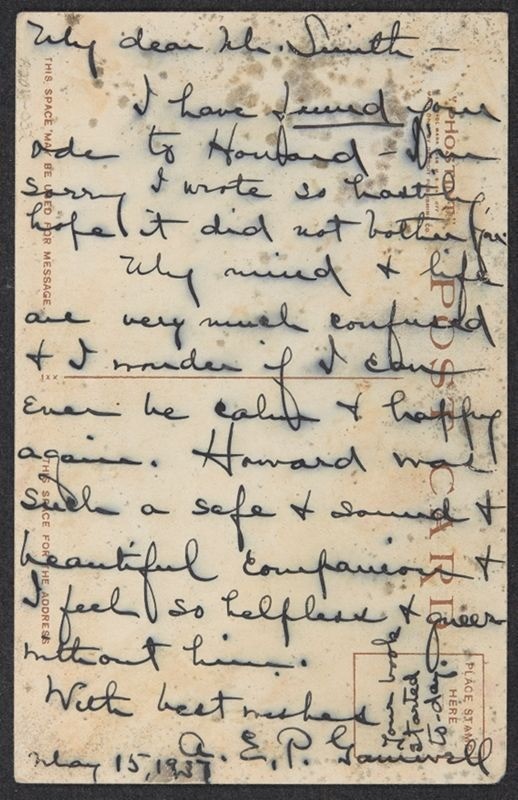 My dear Mr. Smith —
I have found your
ode to Howard — I'm
sorry I wrote so hastily,
hope it did not bother you.
My mind & life
are very much confused
& I wonder if I can
ever be calm & happy
again. Howard was
such a safe & sound &
beautiful companion &
I feel so helpless & queer
without him.
With best wishes
A. E. P. Gamwell
May 15, 1937
Your book
started
to-day.
THIS SPACE MAY BE USED FOR MESSAGE
THIS SPACE FOR THE ADDRESS
POST CARD
PLACE STAMP
HERE